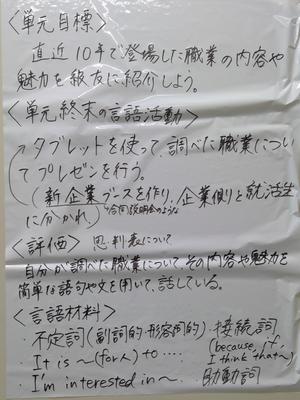 〈単元目標〉
直近10年で登場した職業の内容や
魅力を級友に紹介しよう。
〈単元終末の言語活動〉
タブレットを使って、調べた職業につい
てプレゼンを行う。
(新企業ブースを作り、企業側と就活生
に分かれ) 合同説明会のような
〈評価〉 思・判・表について
自分が調べた職業について、その内容や魅力を
簡単な語句や文を用いて、話している。
〈言語材料〉
・不定詞(副詞的・形容詞的)・接続詞
・It is 〜 (for人) to …. (because, if,
I think that〜)
・I'm interested in 〜. ・助動詞